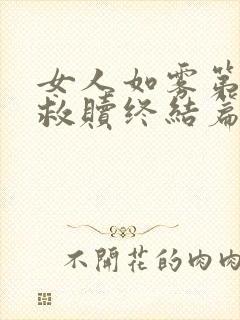 女人如雾第
救赎终结篇
不開花的肉肉